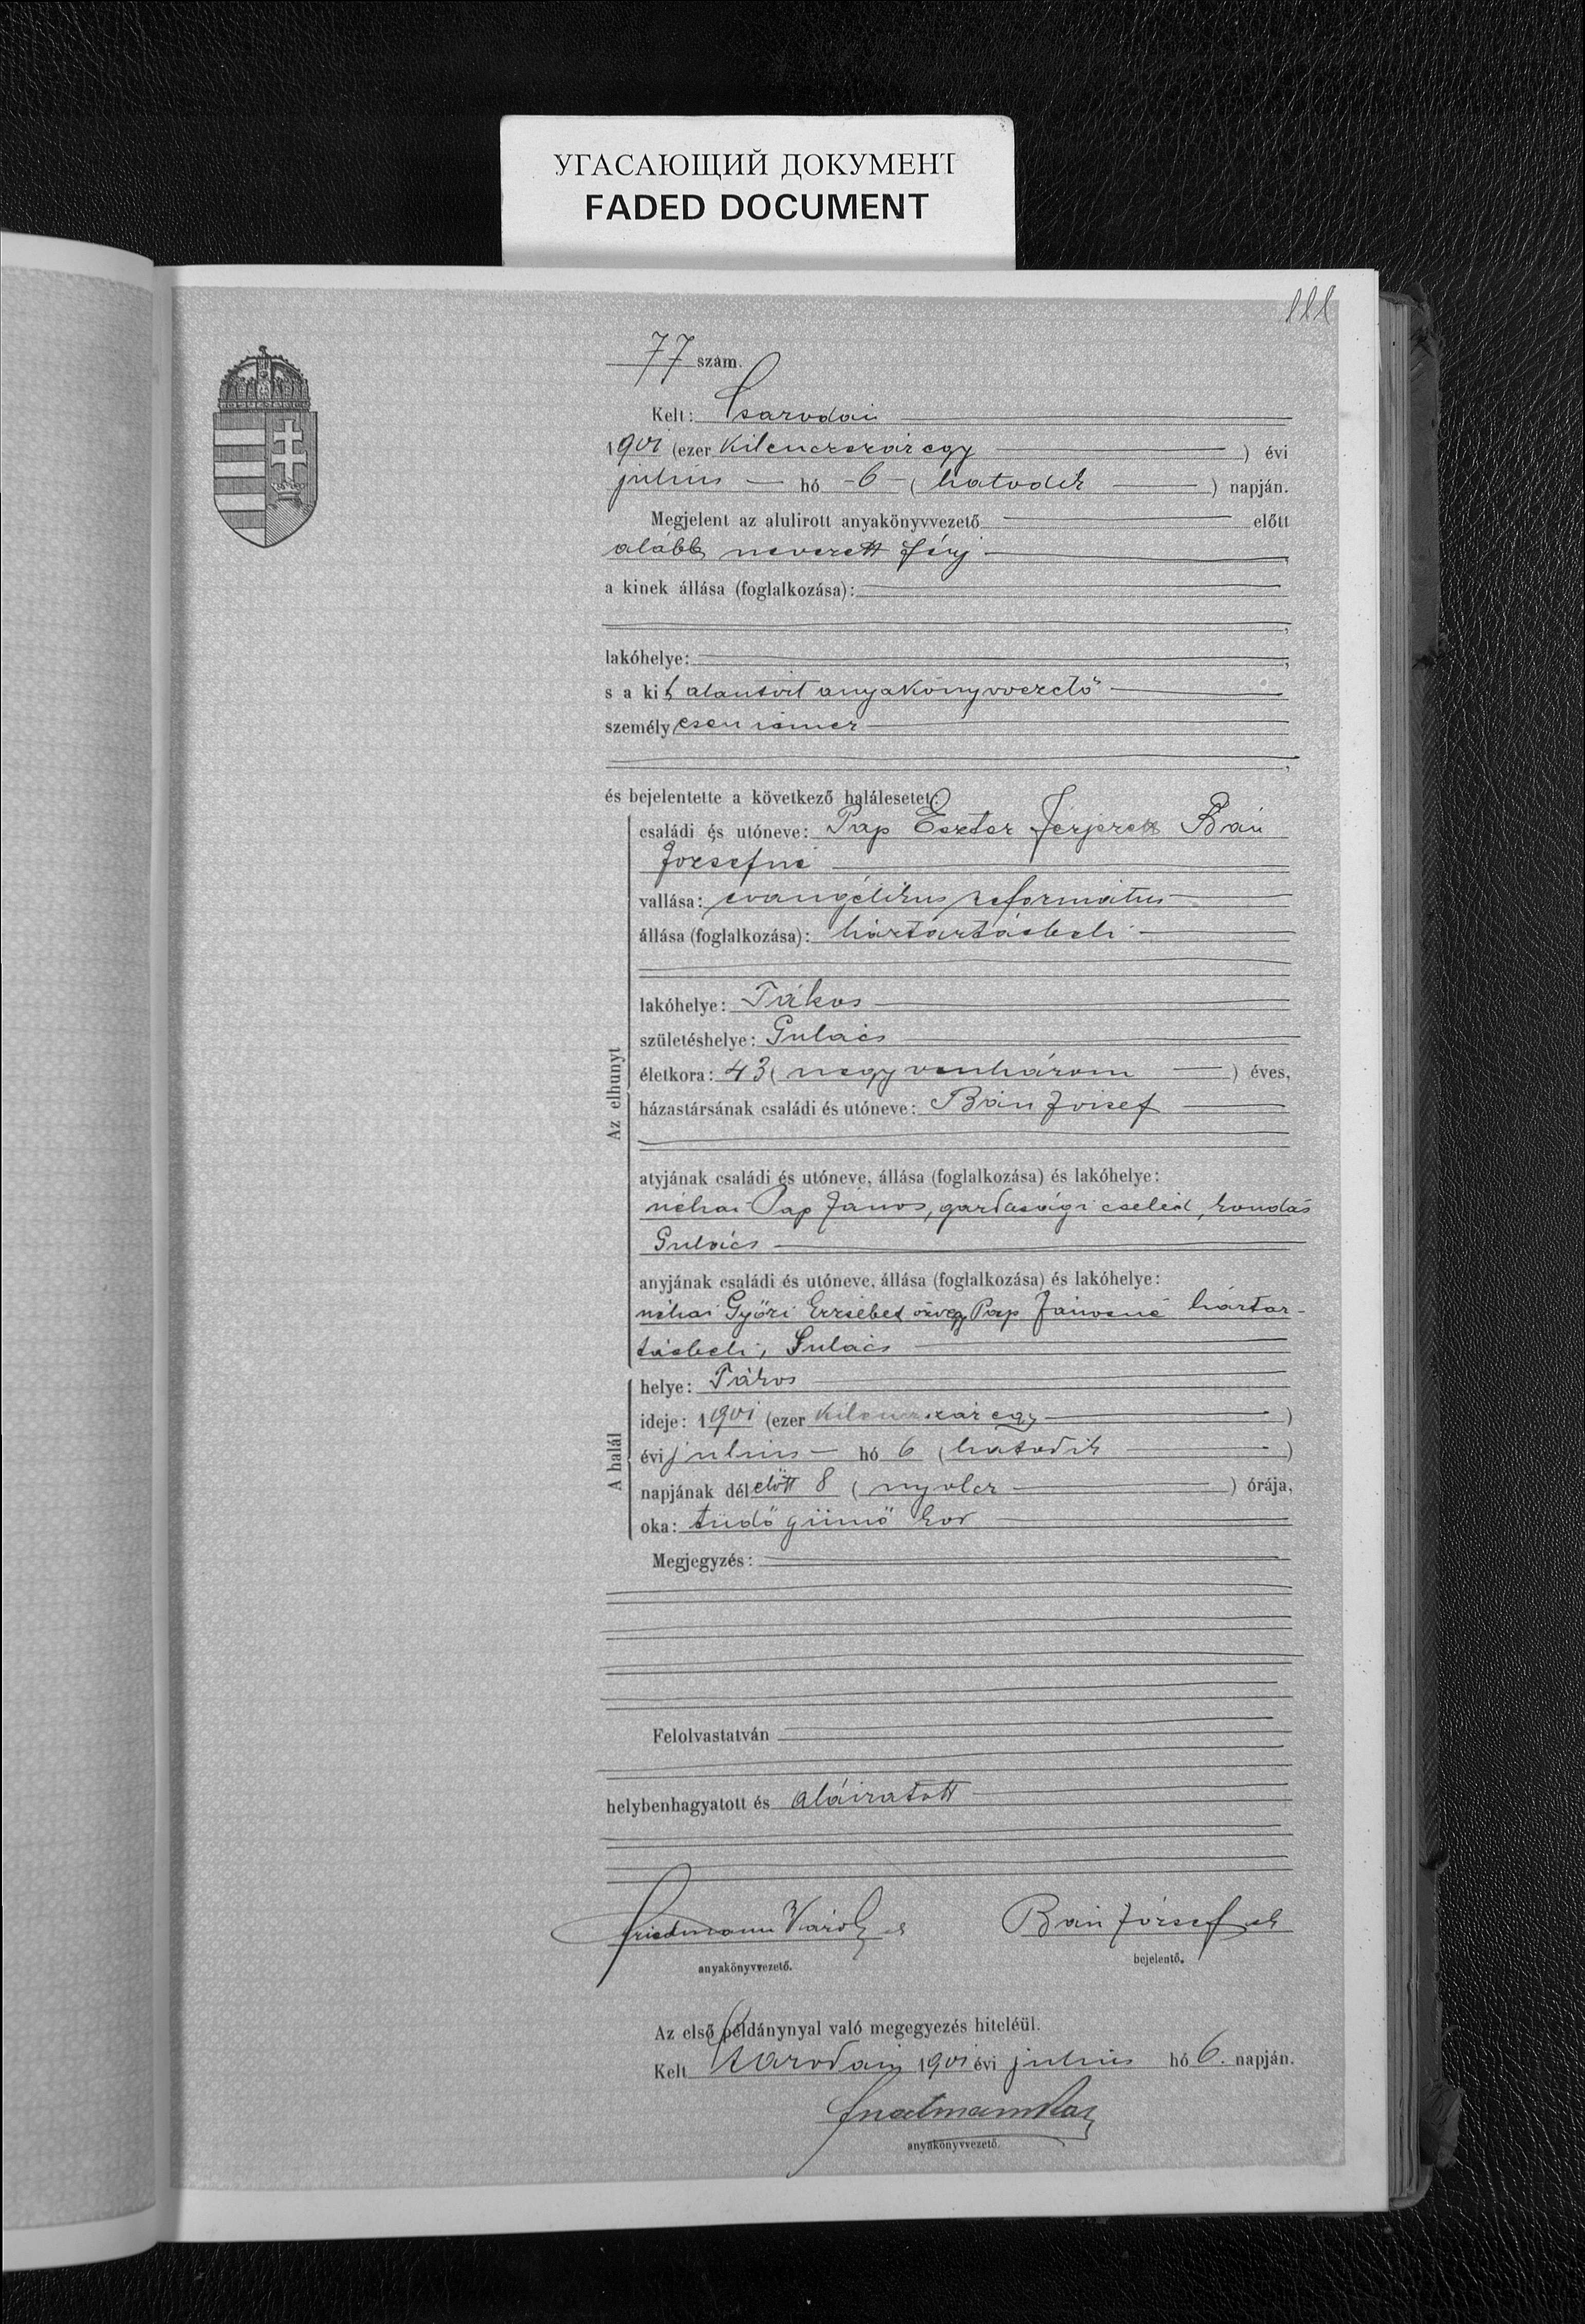 УГАСАЮЩИЙ ДОКУМЕНТ
FADED DOCUMENT
111
77 szám.
Kelt: Csarodai
1901 (ezer kilenczszáz egy) évi
julius hó 6 (hatodik) napján.
Megjelent az alulirott anyakönyvvezető előtt
alább nevezett férj,
a kinek állása (foglalkozása):
lakóhelye:
s a kit alantirt anyakönyvvezető
személyesen ismer
és bejelentette a következő halálesetet:
Az elhunyt
családi és utóneve: Pap Eszter férjezett Bán
Józsefné
vallása: evangélikus református
állása (foglalkozása): háztartásbeli
lakóhelye: Tákos
születéshelye: Gulács
életkora: 43 (negyvenhárom) éves,
házastársának családi és utóneve: Bán József
atyjának családi és utóneve, állása (foglalkozása) és lakóhelye:
néhai Pap János, gazdasági cseléd, kondás
Gulács
anyjának családi és utóneve, állása (foglalkozása) és lakóhelye:
néhai Győri Erzsébet özvegy Pap Jánosné háztar-
tásbeli, Gulács
A halál
helye: Tákos
ideje: 1901 (ezer kilenczszáz egy)
évi julius hó 6 (hatodik)
napjának délelőtt 8 (nyolcz) órája,
oka: tüdő gümő kor
Megjegyzés:
Felolvastatván
helybenhagyatott és aláiratott
Friedmann Károly
anyakönyvvezető.
Bán József
bejelentő.
Az első példánynyal való megegyezés hiteléül.
Kelt Csarodai 1901 évi julius hó 6. napján.
anyakönyvvezető.